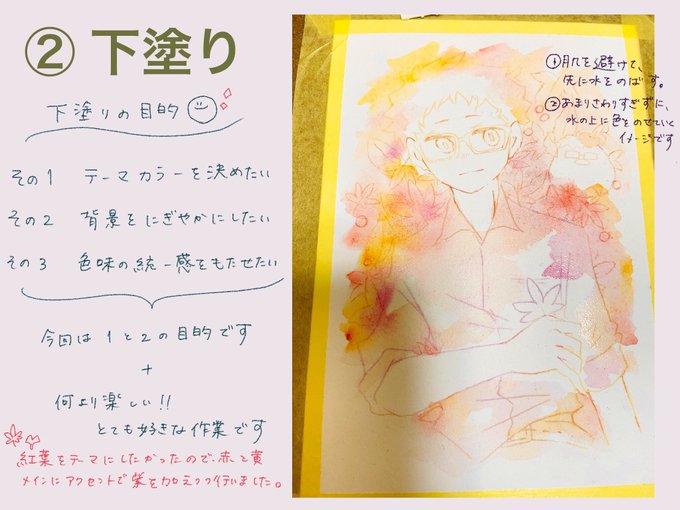 ② 下塗り
下塗りの目的
その1 テーマカラーを決めたい
その2 背景をにぎやかにしたい
その3 色味の統一感をもたせたい
今回は1と2の目的です
+
何より楽しい!!
とても好きな作業です
紅葉をテーマにしたかったので、赤と黄
メインにアクセントで紫を加えつつ行いました。
①肌を避けて、
先に水をのばす。
②あまりさわりすぎずに、
水の上に色をのせていく
イメージです